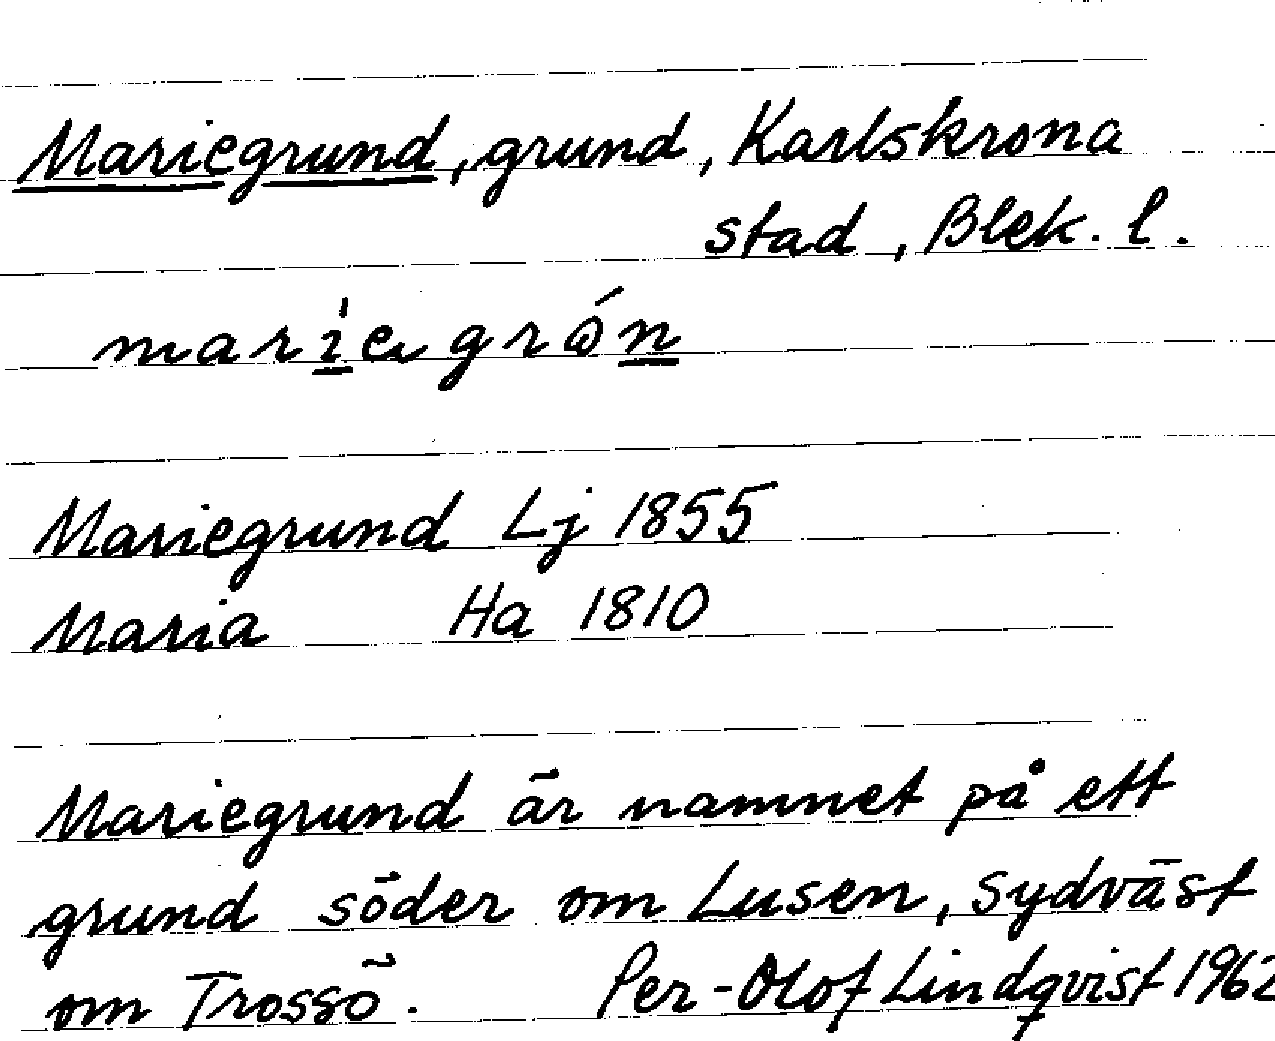 Mariegrund, grund, Karlskrona
stad, Blek. l.
Mariegrund Lj 1855
Maria Ha 1810
Mariegrund är namnet på ett
grund söder om Lusen, sydväst
om Trossö. Per-Olof Lindqvist 1962